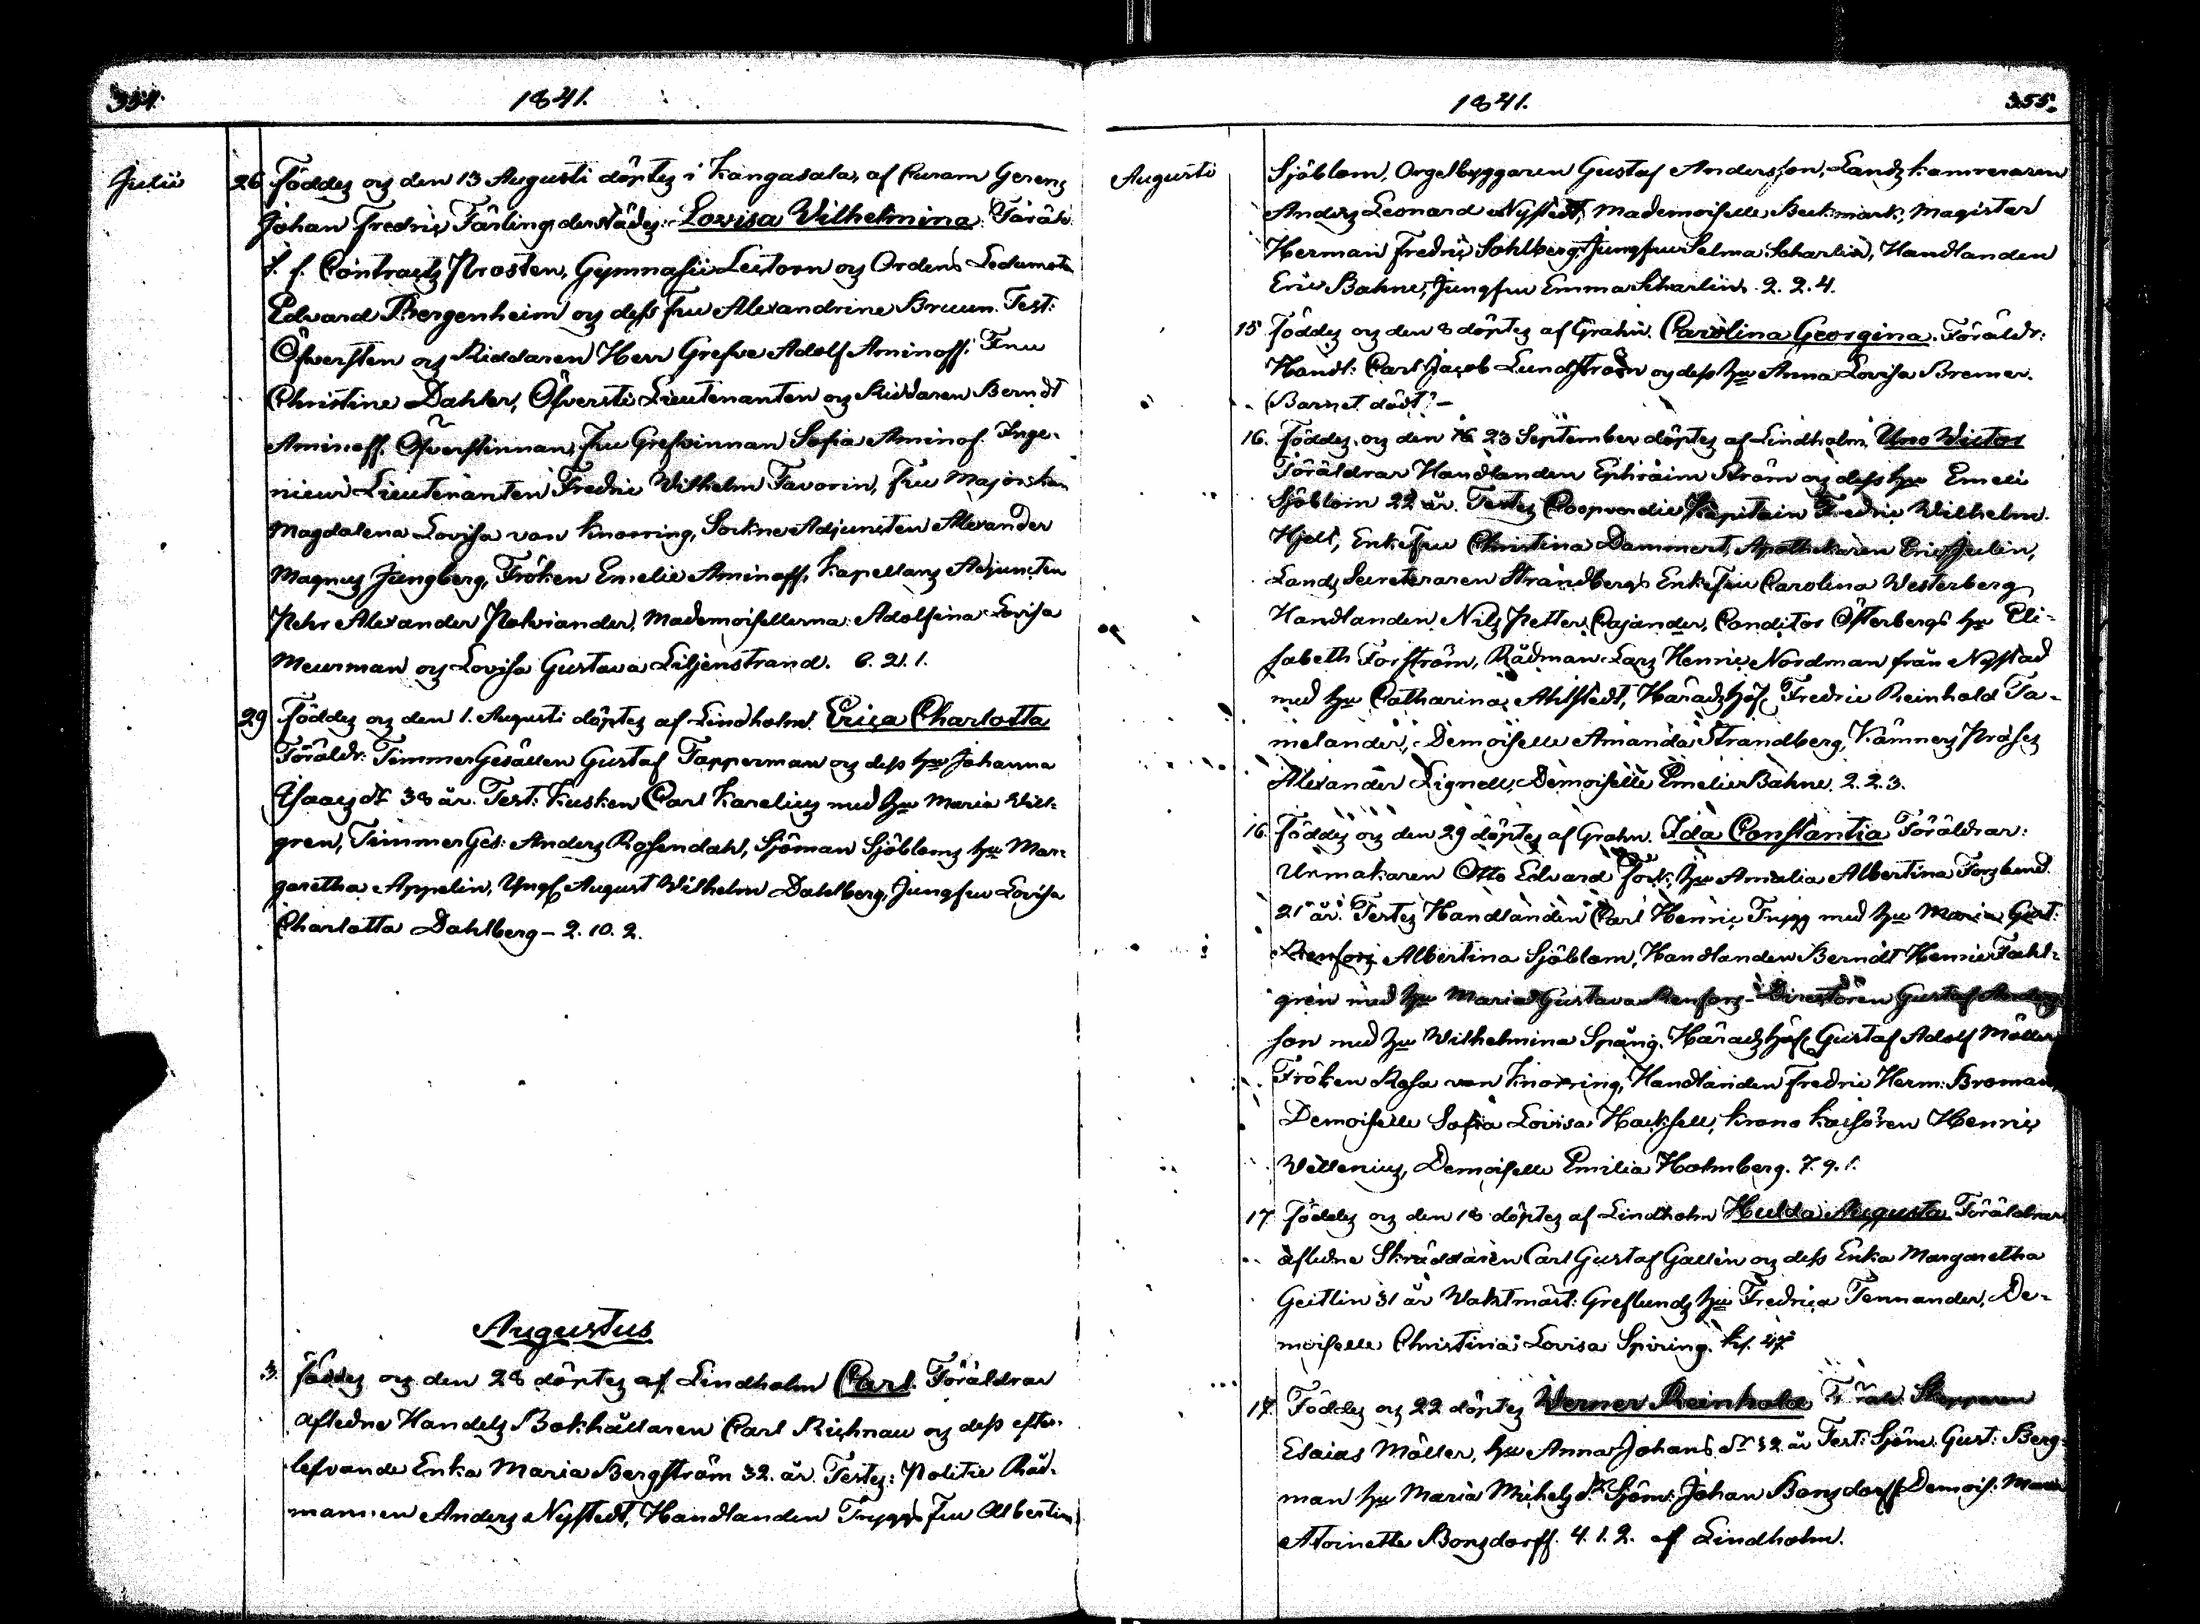 354.
1841.
Julii
26 Föddes och den 13 Augusti döptes i Kangasala, af Curam Gerens
Johan Fredric Färling derstädes: Lovisa Wilhelmina. Föräld:
f. f. Contracts Prosten, Gymnasii Lectorn och Ordens Ledamoten
Edvard Bergenheim och dess fru Alexandrine Bruun. Test:
Öfwersten och Riddaren Herr Grefve Adolf Aminoff, Fru
Christine Dahler, Öfversti Lieutenanten och Riddaren Berndt
Aminoff, Öfverstinnan, fru Grefvinnan Sofia Aminof. Inge-
nieurs Lieutenanten Fredric Wilhelm Favorin, fru Majorskan
Magdalena Lovisa von Knorring, SockneAdjuncten Alexander
Magnus Jungberg, Fröken Emelie Aminoff, Kapellans Adjuncten
Pehr Alexander Polviander, Mademoisellerna: Adolfina Lovisa
Meurman och Lovisa Gustava Liljenstrand. 6. 2. 1.
29 Föddes och den 1. Augusti döptes af Lindholm. Erica Charlotta
Föräldr: TimmerGesällen Gustaf Tapperman och dess hu Johanna
Isaacs dr 38 år. Test: Kusken Carl Karelius med hu Maria Will-
gren, TimmerGes: Anders Rosendahl, Sjöman Sjöbloms hu Mar-
garetha Appelin, Yngl August Wilhelm Dahlberg, Jungfru Lovisa
Charlotta Dahlberg - 2. 10. 2.
Augustus
3. Föddes och den 28 döptes af Lindholm Carl. Föräldrar
afledne Handels Bokhållaren Carl Richnau och dess efter-
lefvande Enka Maria Bergström 32. år. Testes: Politie Råd-
mannen Anders Nystedt, Handlanden Triggs fru Albertina
1841.
355.
Augusti
Sjöblom, Orgelbyggaren Gustaf Andersson, Landskamreraren
Anders Leonard Nystedt, Mademoiselle Beckmark, Magister
Herman Fredric Sohlberg, Jungfru Selma Scharlin, Handlanden
Eric Bahne, Jungfru Emma Scharlin. 2. 2. 4.
15 Föddes och den 8 döptes af Grahn. Carolina Georgina. Föräldr:
Handl: Carl Jacob Lundström och dess hu Anna Lovisa Bremer.
(Barnet dödt) -
16. Föddes och den 23 September döptes af Lindholm, Uno Wictor
Föräldrar Handlanden Ephraim Ström och dess hu Emeli
Sjöblom 22 år. Testes Coopvardie Kapitain Fredric Wilhelm
Hjelt, Enkefru Christina Dammert, Apothekaren Eric Julin,
Lands Secreteraren Strandbergs Enkefru Carolina Westerberg
Handlanden Nils Petter Cajander, Conditor Österbergs hu Eli-
sabeth Forström, Rådman Lars Henric Nordman från Nystad
med hu Catharina Ahlstedt, Häradshöf. Fredric Reinhold Ta-
melander, Demoiselle Amanda Strandberg, Kämners Präses
Alexander Lignell, Demoiselle Emelie Bahne. 2. 2. 3.
16. Föddes och den 29 döptes af Grahn. Ida Constantia Föräldrar:
Urmakaren Otto Edvard Fock, hu Amalia Albertina Forslund.
21 år. Testes Handlanden Carl Henric Trigg med hu Maria Gust:
Renfors Albertina Sjöblom, Handlanden Berndt Henric Fahl-
gren med hu Maria Gustava Renfors - Directören Gustaf Anders-
son med hu Wilhelmina Spång. Häradshöf. Gustaf Adolf Möller
Fröken Rosa von Knorring, Handlanden Fredric Herm: Broman
Demoiselle Sofia Lovisa Hacksell, Krono Kassören Henric
Wellenius, Demoiselle Emilia Holmberg. 7. 9. 1.
17 Föddes och den 18 döptes af Lindholm Hulda Augusta Föräldrar
afledne Skräddaren Carl Gustaf Gallen och dess Enka Margaretha
Geitlin 31 år Waktmäst: Greflunds hu Fredrica Tennander, De-
moiselle Christina Lovisa Spiring. kl. 47
17. Föddes och 22 döptes Werner Reinhold Föräld. Skepparen
Esaias Möller, hu Anna Johans dr 32 år Test: Sjöm: Gust: Berg-
man hu Maria Michels dr Sjöm: Johan Bonsdorff Demois. Maria
Atoinette Bonsdorff. 4. 1. 2. af Lindholm.